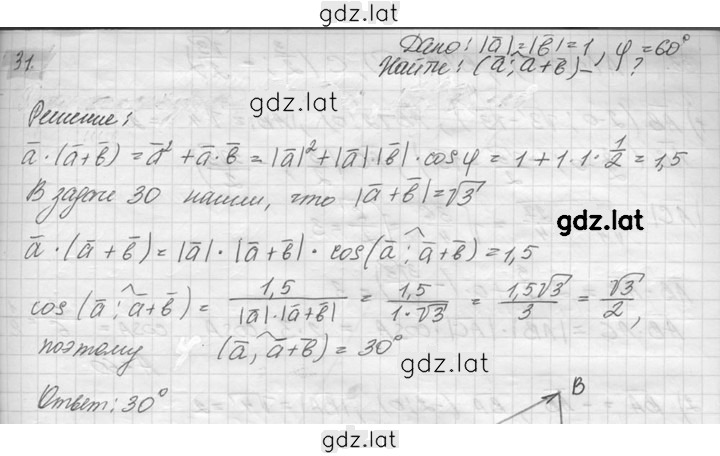 gdz.lat
31. Дано: |a̅|=|b̅|=1, φ=60°
Найти: (a̅;^a̅+b̅)-?
gdz.lat
Решение:
a̅·(a̅+b̅)=a̅²+a̅·b̅=|a̅|²+|a̅|·|b̅|·cosφ=1+1·1·1/2=1,5
В задаче 30 нашли, что |a̅+b̅|=√3
gdz.lat
a̅·(a̅+b̅)=|a̅|·|a̅+b̅|·cos(a̅;^a̅+b̅)=1,5
cos(a̅;^a̅+b̅)=1,5/(|a̅|·|a̅+b̅|)=1,5/(1·√3)=1,5√3/3=√3/2,
поэтому (a̅;^a̅+b̅)=30°
gdz.lat
Ответ: 30°
B
gdz.lat